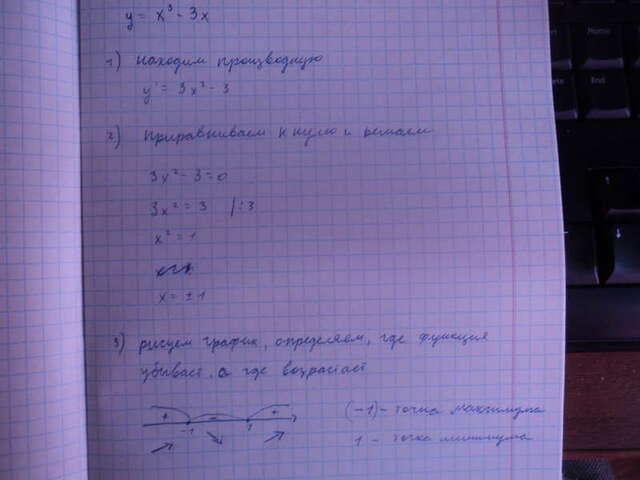 y = x³ - 3x
1) находим производную
y' = 3x² - 3
2) приравниваем к нулю и решаем
3x² - 3 = 0
3x² = 3 |:3
x² = 1
x = ±1
3) рисуем график, определяем, где функция
убывает, а где возрастает
+ - +
-1 1
(-1) - точка максимума
1 - точка минимума
End